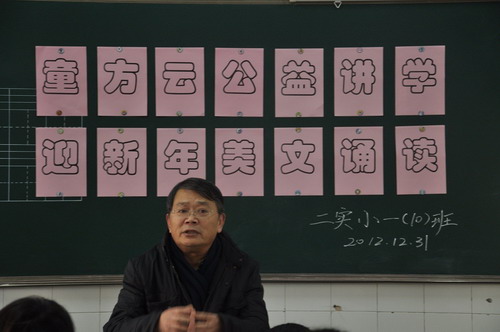 童方云公益讲学
迎新年美文诵读
二实小一(10)班
2012.12.31